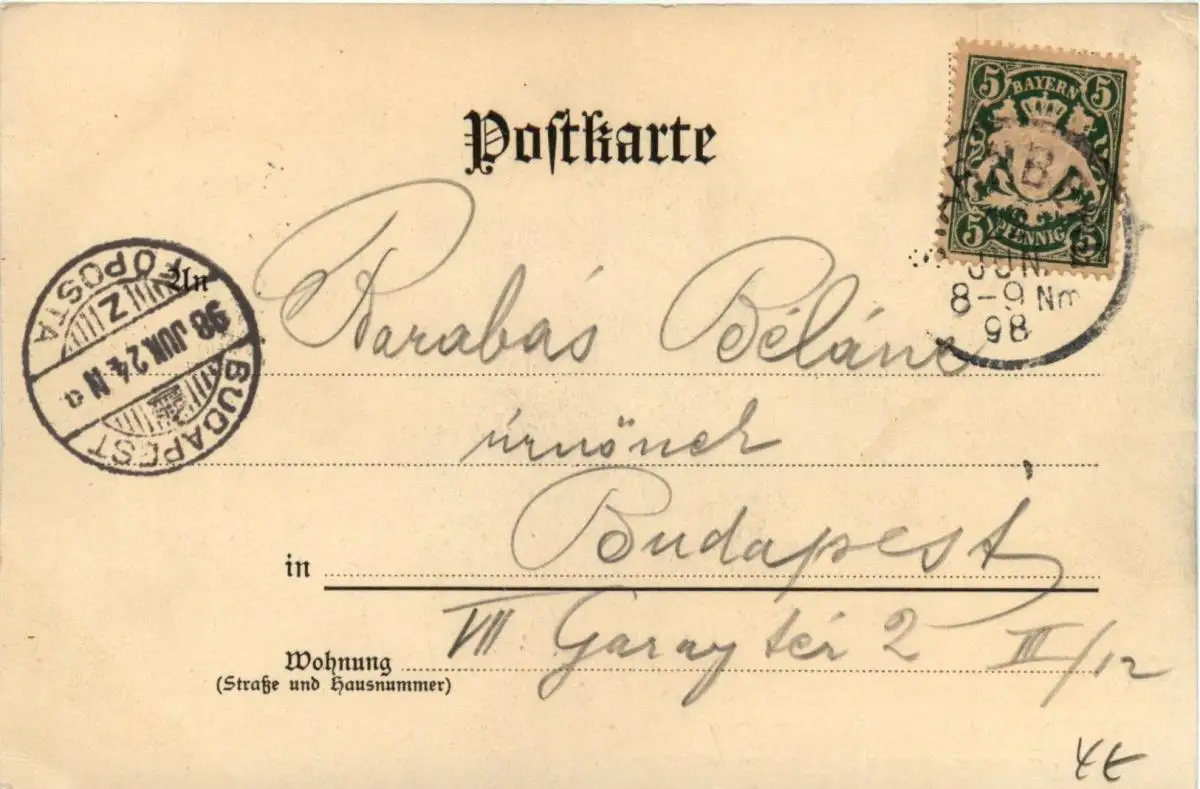 5 BAYERN 5
5 PFENNIG 5
Postkarte
JUN.
8-9 Nm
98
An
Barabás Béláné
úrnőnek
in Budapest
Wohnung VII Garay tér 2 II/12
(Straße und Hausnummer)
BUDAPEST
98 JUN. 24 N
FŐPOSTA